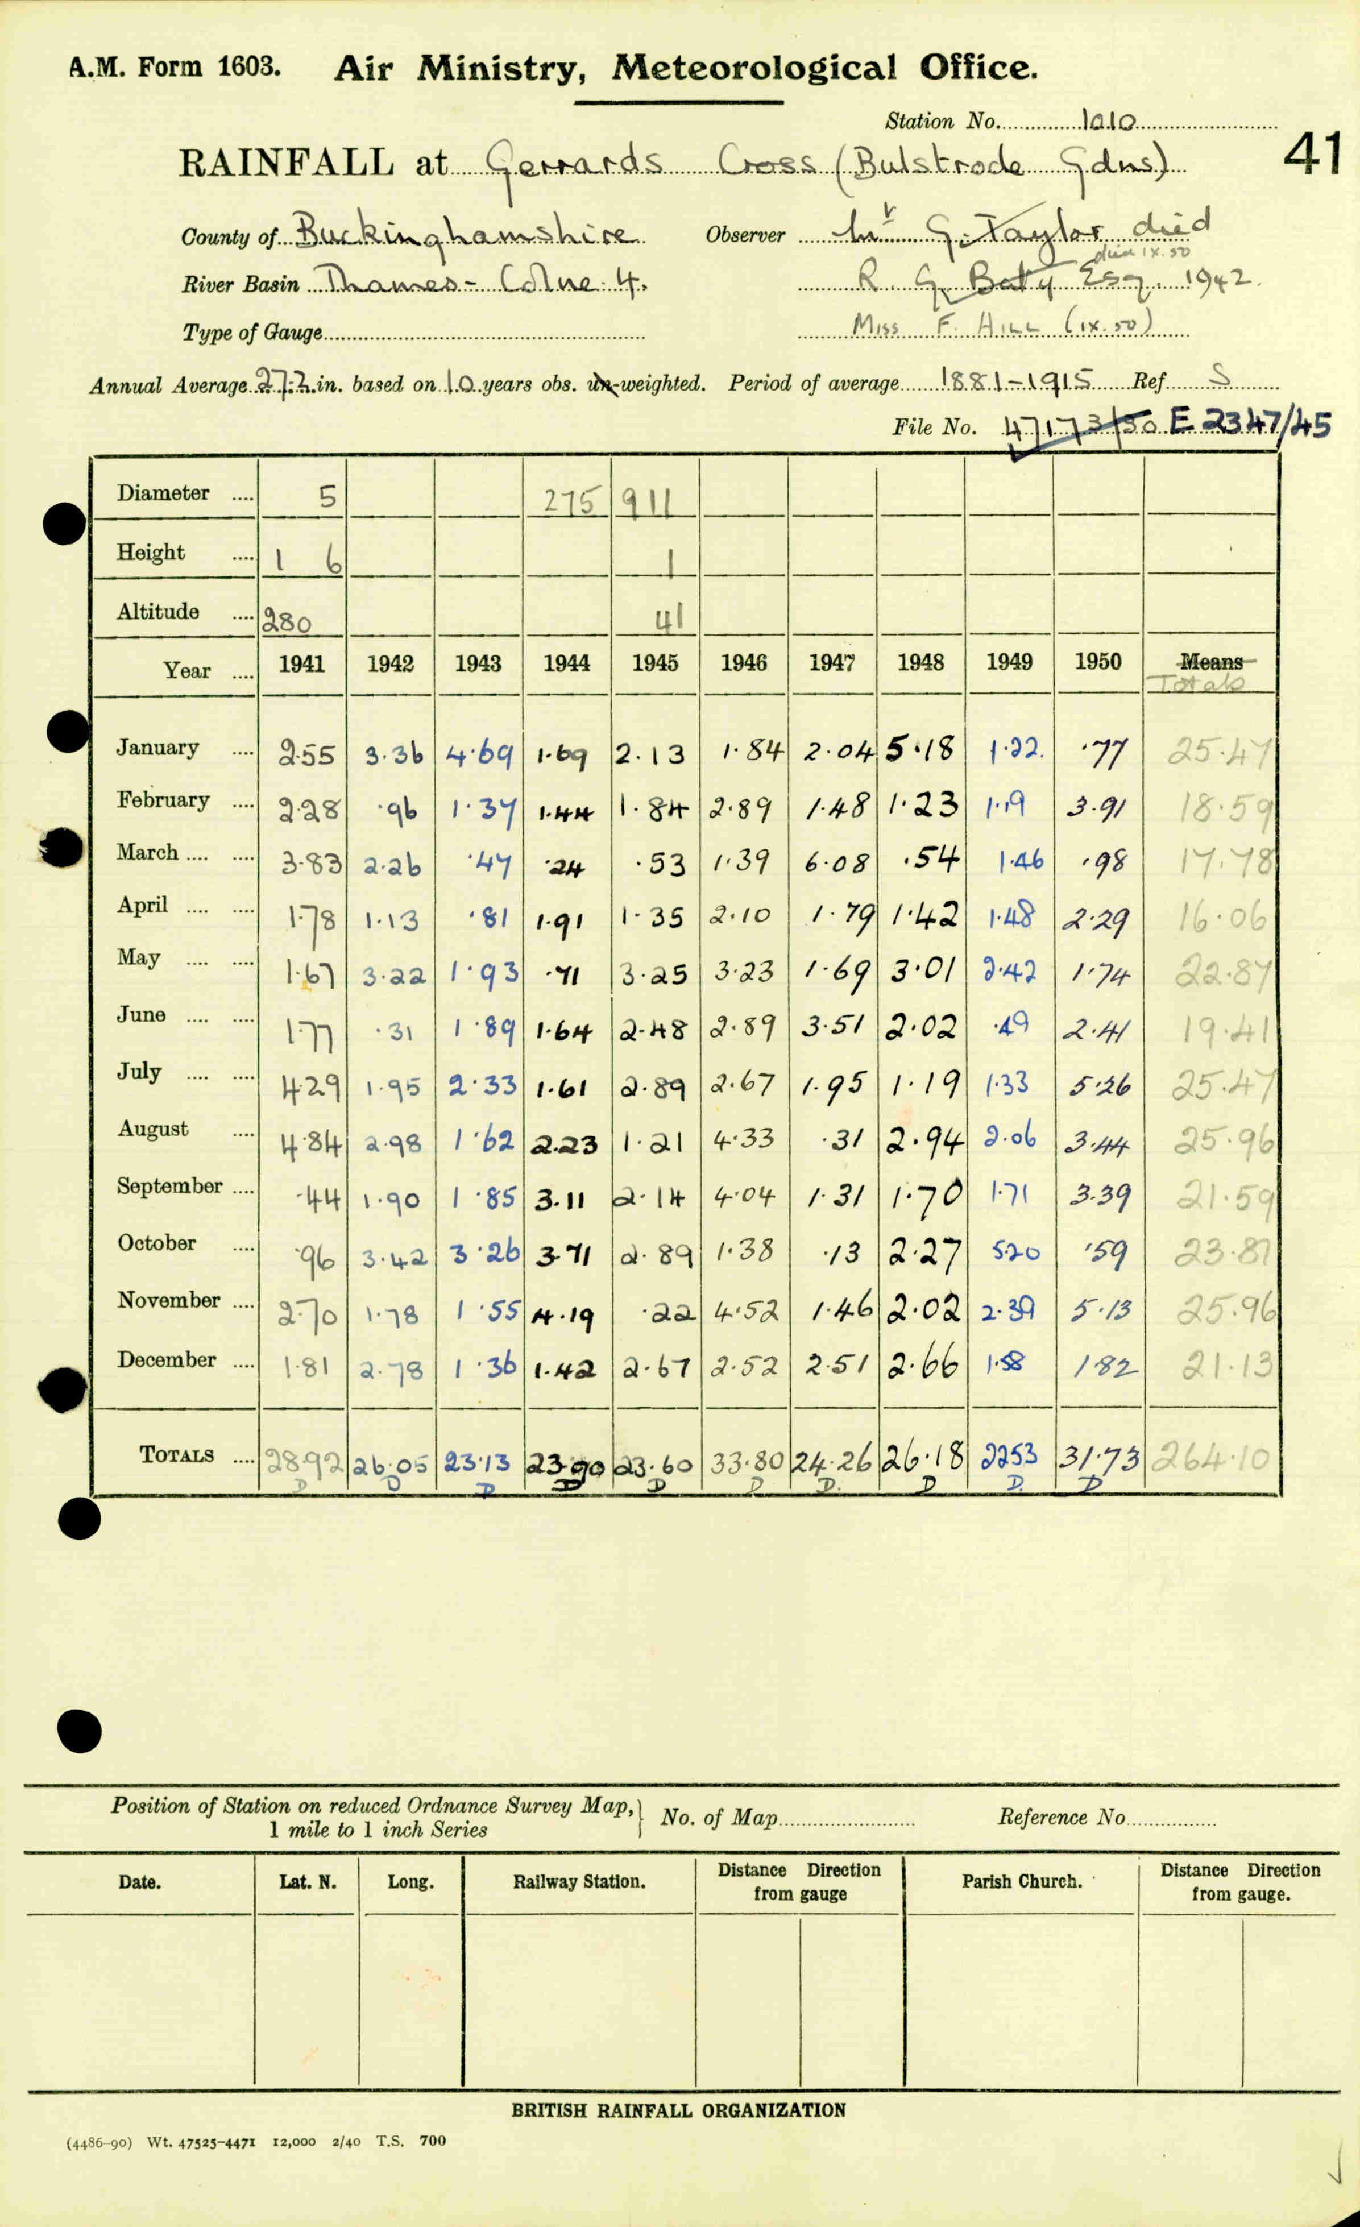 A.M. Form 1603. Air Ministry, Meteorological Office.
Station No. 1010
41
RAINFALL at Gerrards Cross (Bulstrode Gdns)
County of Buckinghamshire Observer Mr G. Taylor died
died IX.50
River Basin Thames - Colne 4. R. G. Baty Esq. 1942.
Type of Gauge Miss F. HILL (IX.50)
Annual Average 27.2 in. based on 10 years obs. un-weighted. Period of average 1881-1915 Ref S
File No. 47173/30 E 2347/45
Diameter .... 5 275 911
Height .... 1 6 1
Altitude .... 280 41
Year .... 1941 1942 1943 1944 1945 1946 1947 1948 1949 1950 Means
Totals
January .... 2.55 3.36 4.69 1.69 2.13 1.84 2.04 5.18 1.22 .77 25.47
February .... 2.28 .96 1.37 1.44 1.84 2.89 1.48 1.23 1.19 3.91 18.59
March .... .... 3.83 2.26 .47 .24 .53 1.39 6.08 .54 1.46 .98 17.78
April .... .... 1.78 1.13 .81 1.91 1.35 2.10 1.79 1.42 1.48 2.29 16.06
May .... .... 1.67 3.22 1.93 .71 3.25 3.23 1.69 3.01 2.42 1.74 22.87
June .... .... 1.77 .31 1.89 1.64 2.48 2.89 3.51 2.02 .49 2.41 19.41
July .... .... 4.29 1.95 2.33 1.61 2.89 2.67 1.95 1.19 1.33 5.26 25.47
August .... 4.84 2.98 1.62 2.23 1.21 4.33 .31 2.94 2.06 3.44 25.96
September .... .44 1.90 1.85 3.11 2.14 4.04 1.31 1.70 1.71 3.39 21.59
October .... .96 3.42 3.26 3.71 2.89 1.38 .13 2.27 5.20 .59 23.81
November .... 2.70 1.78 1.55 4.19 .22 4.52 1.46 2.02 2.39 5.13 25.96
December .... 1.81 2.78 1.36 1.42 2.67 2.52 2.51 2.66 1.58 1.82 21.13
TOTALS .... 28.92 26.05 23.13 23.90 23.60 33.80 24.26 26.18 22.53 31.73 264.10
D D D D D D D. D D. D
Position of Station on reduced Ordnance Survey Map, No. of Map Reference No.
1 mile to 1 inch Series
Date. Lat. N. Long. Railway Station. Distance Direction from gauge Parish Church. Distance Direction from gauge.
BRITISH RAINFALL ORGANIZATION
(4486-90) Wt. 47525-4471 12,000 2/40 T.S. 700